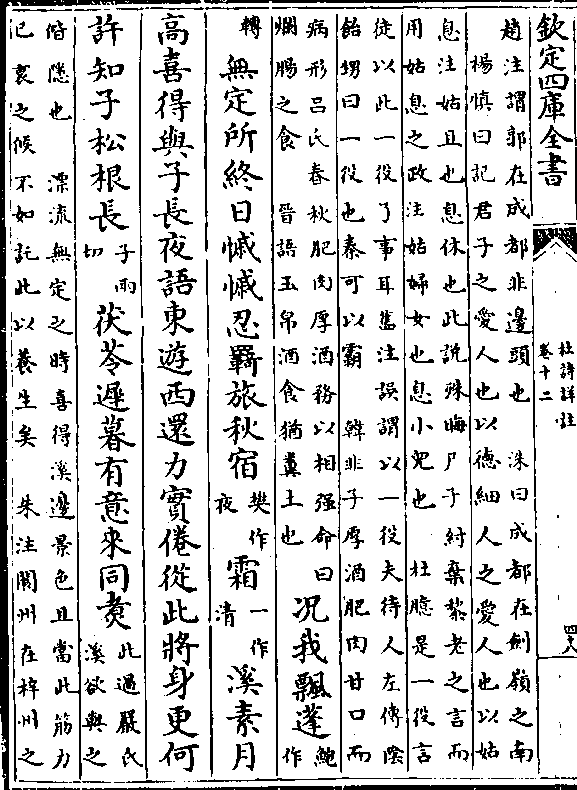 欽定四庫全書
杜詩詳註
卷十二
四六
趙注謂郭在成都非邊頭也　洙曰成都在劍嶺之南
楊慎曰記君子之愛人也以德細人之愛人也以姑
息注姑且也息休也此說殊晦尸子紂棄黎老之言而
用姑息之政注姑婦女也息小兒也　杜臆是一役言
從以此一役了事耳舊注誤謂以一役夫待人左傳陰
飴甥曰一役也秦可以霸　韓非子厚酒肥肉甘口而
病形呂氏春秋肥肉厚酒務以相强命曰
爛腸之食　晉語玉帛酒食猶糞土也
况我飄蓬
鮑作
轉
無定所終日慽慽忍羇旅秋宿
樊作
夜
霜
一作
清
溪素月
高喜得與子長夜語東遊西還力實倦從此將身更何
許知子松根長
子兩
切
茯苓遲暮有意來同煑
此過嚴氏
溪欲與之
偕隱也　漂流無定之時喜得溪邊景色且當此筋力
已衰之候不如託此以養生矣　朱注閬州在梓州之